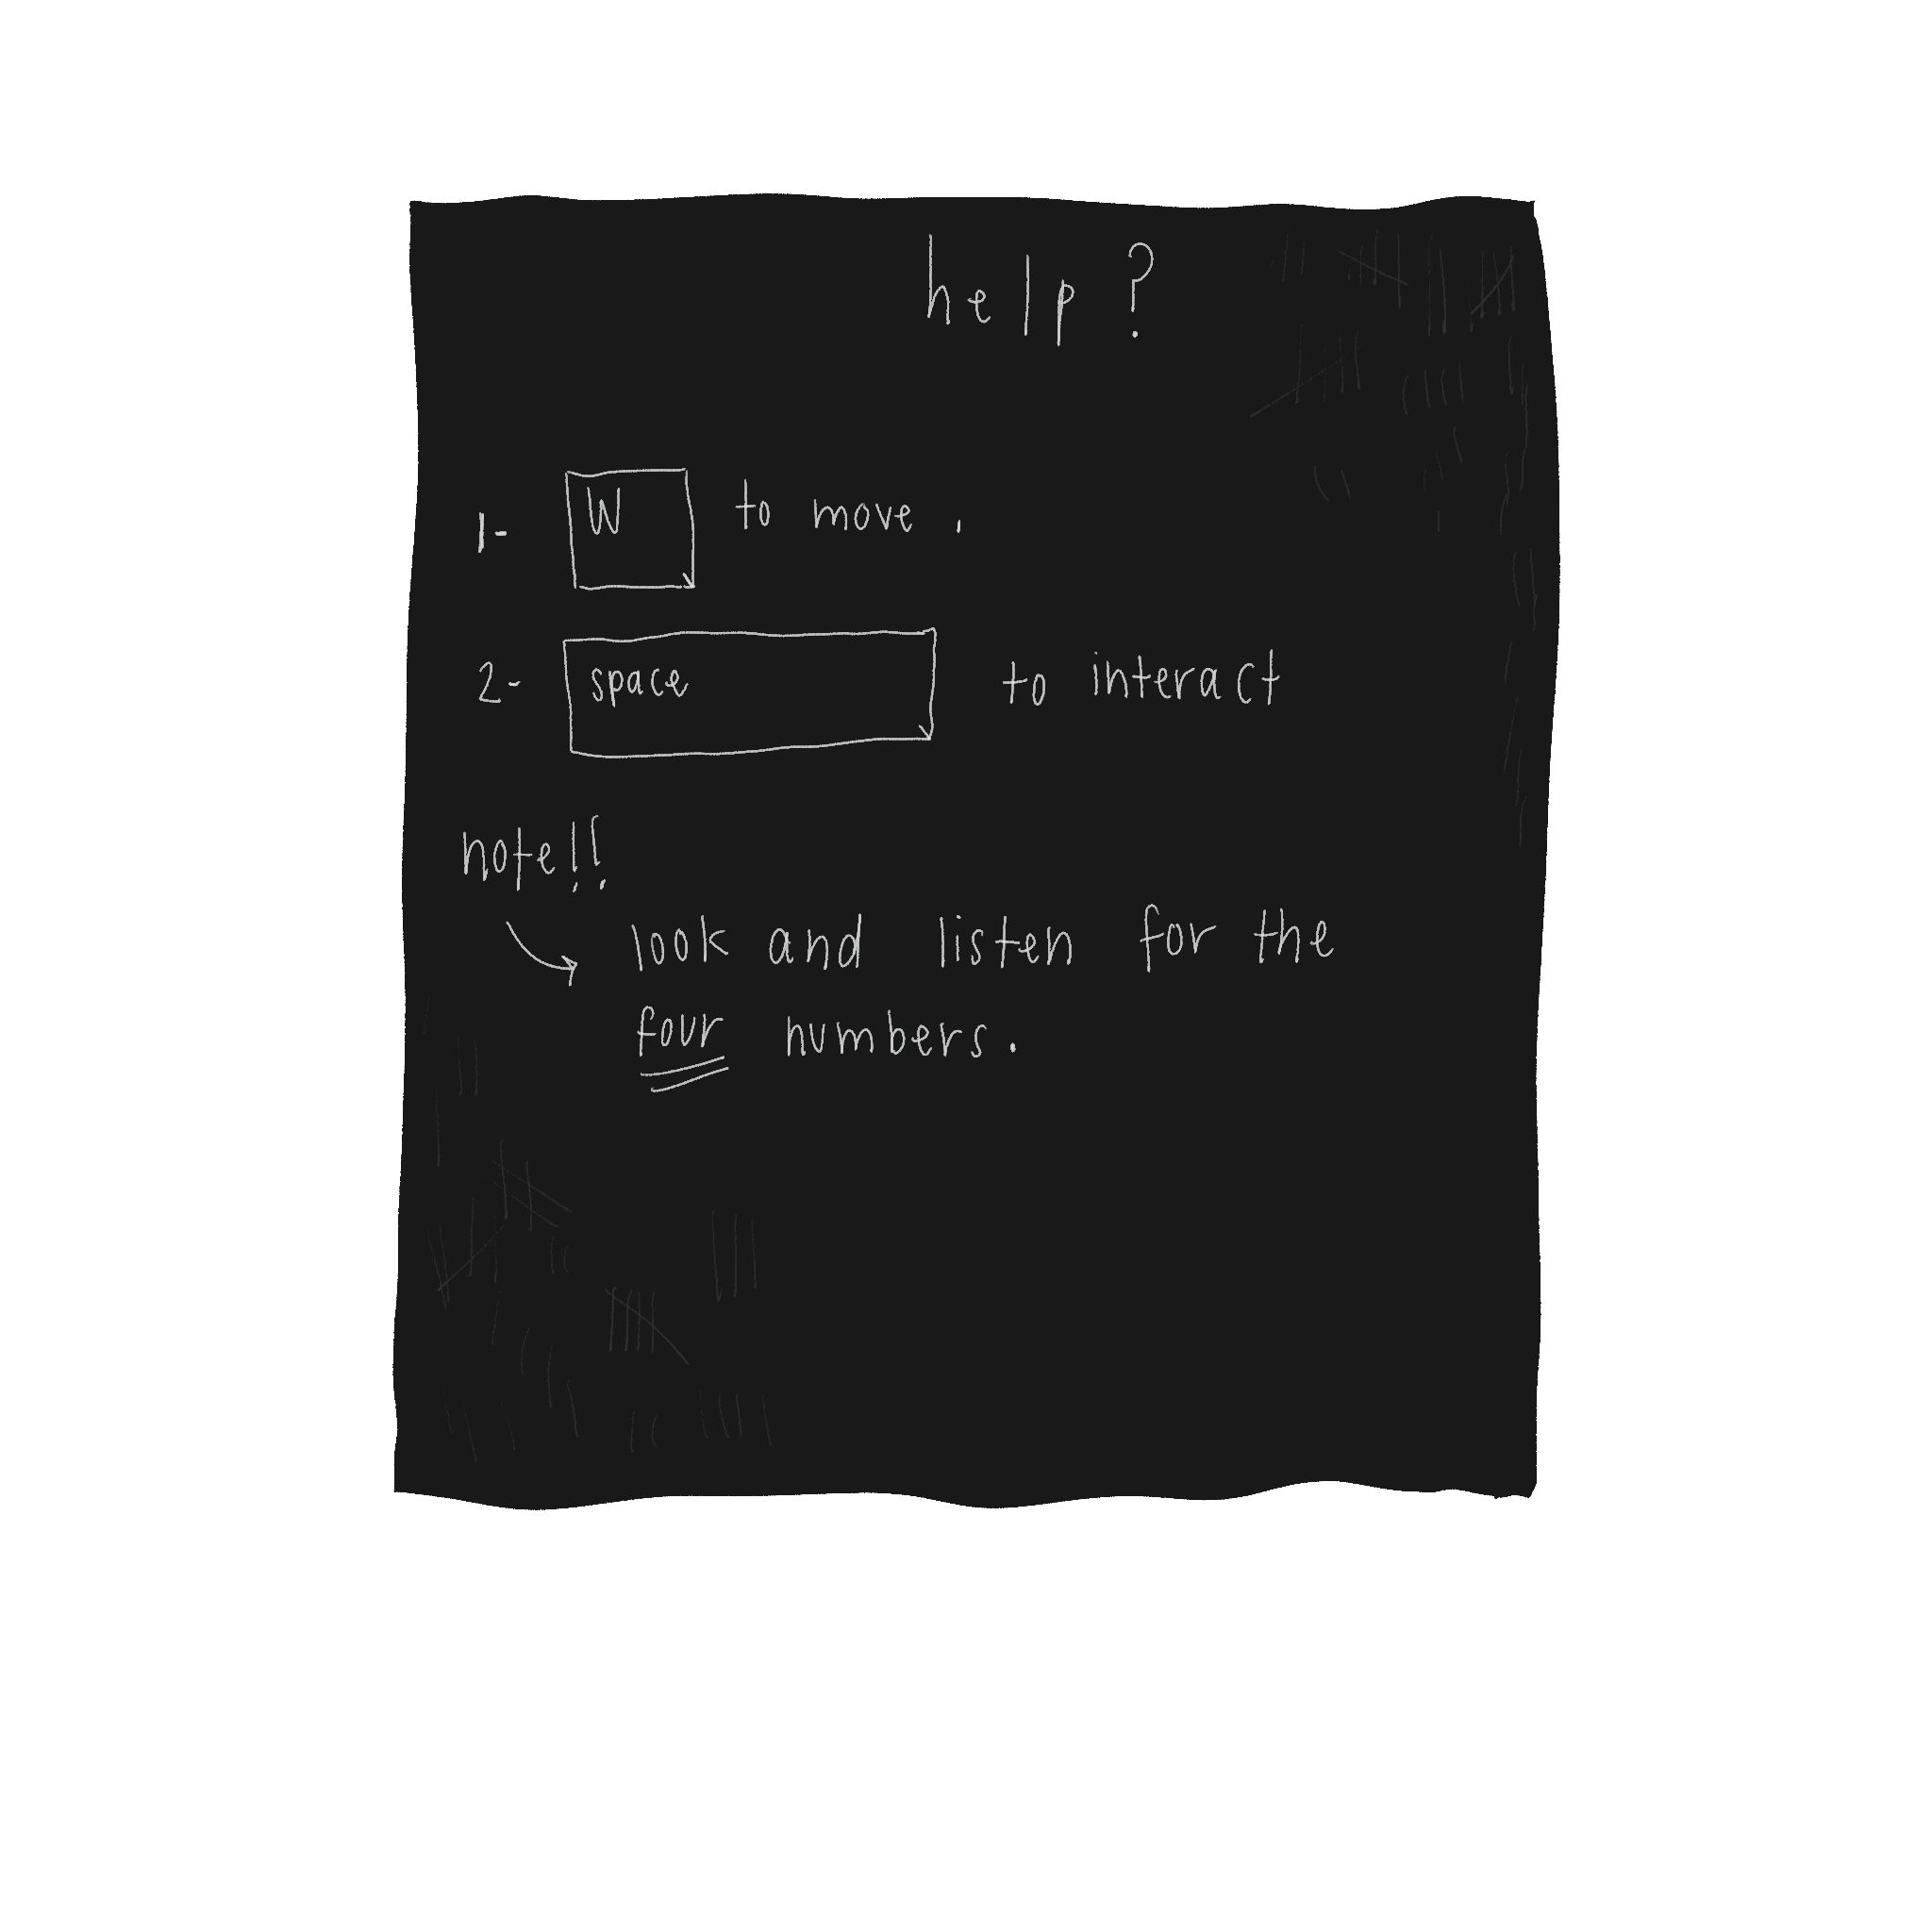 help?
1- W to move.
2- space to interact
note!!
look and listen for the
four numbers.